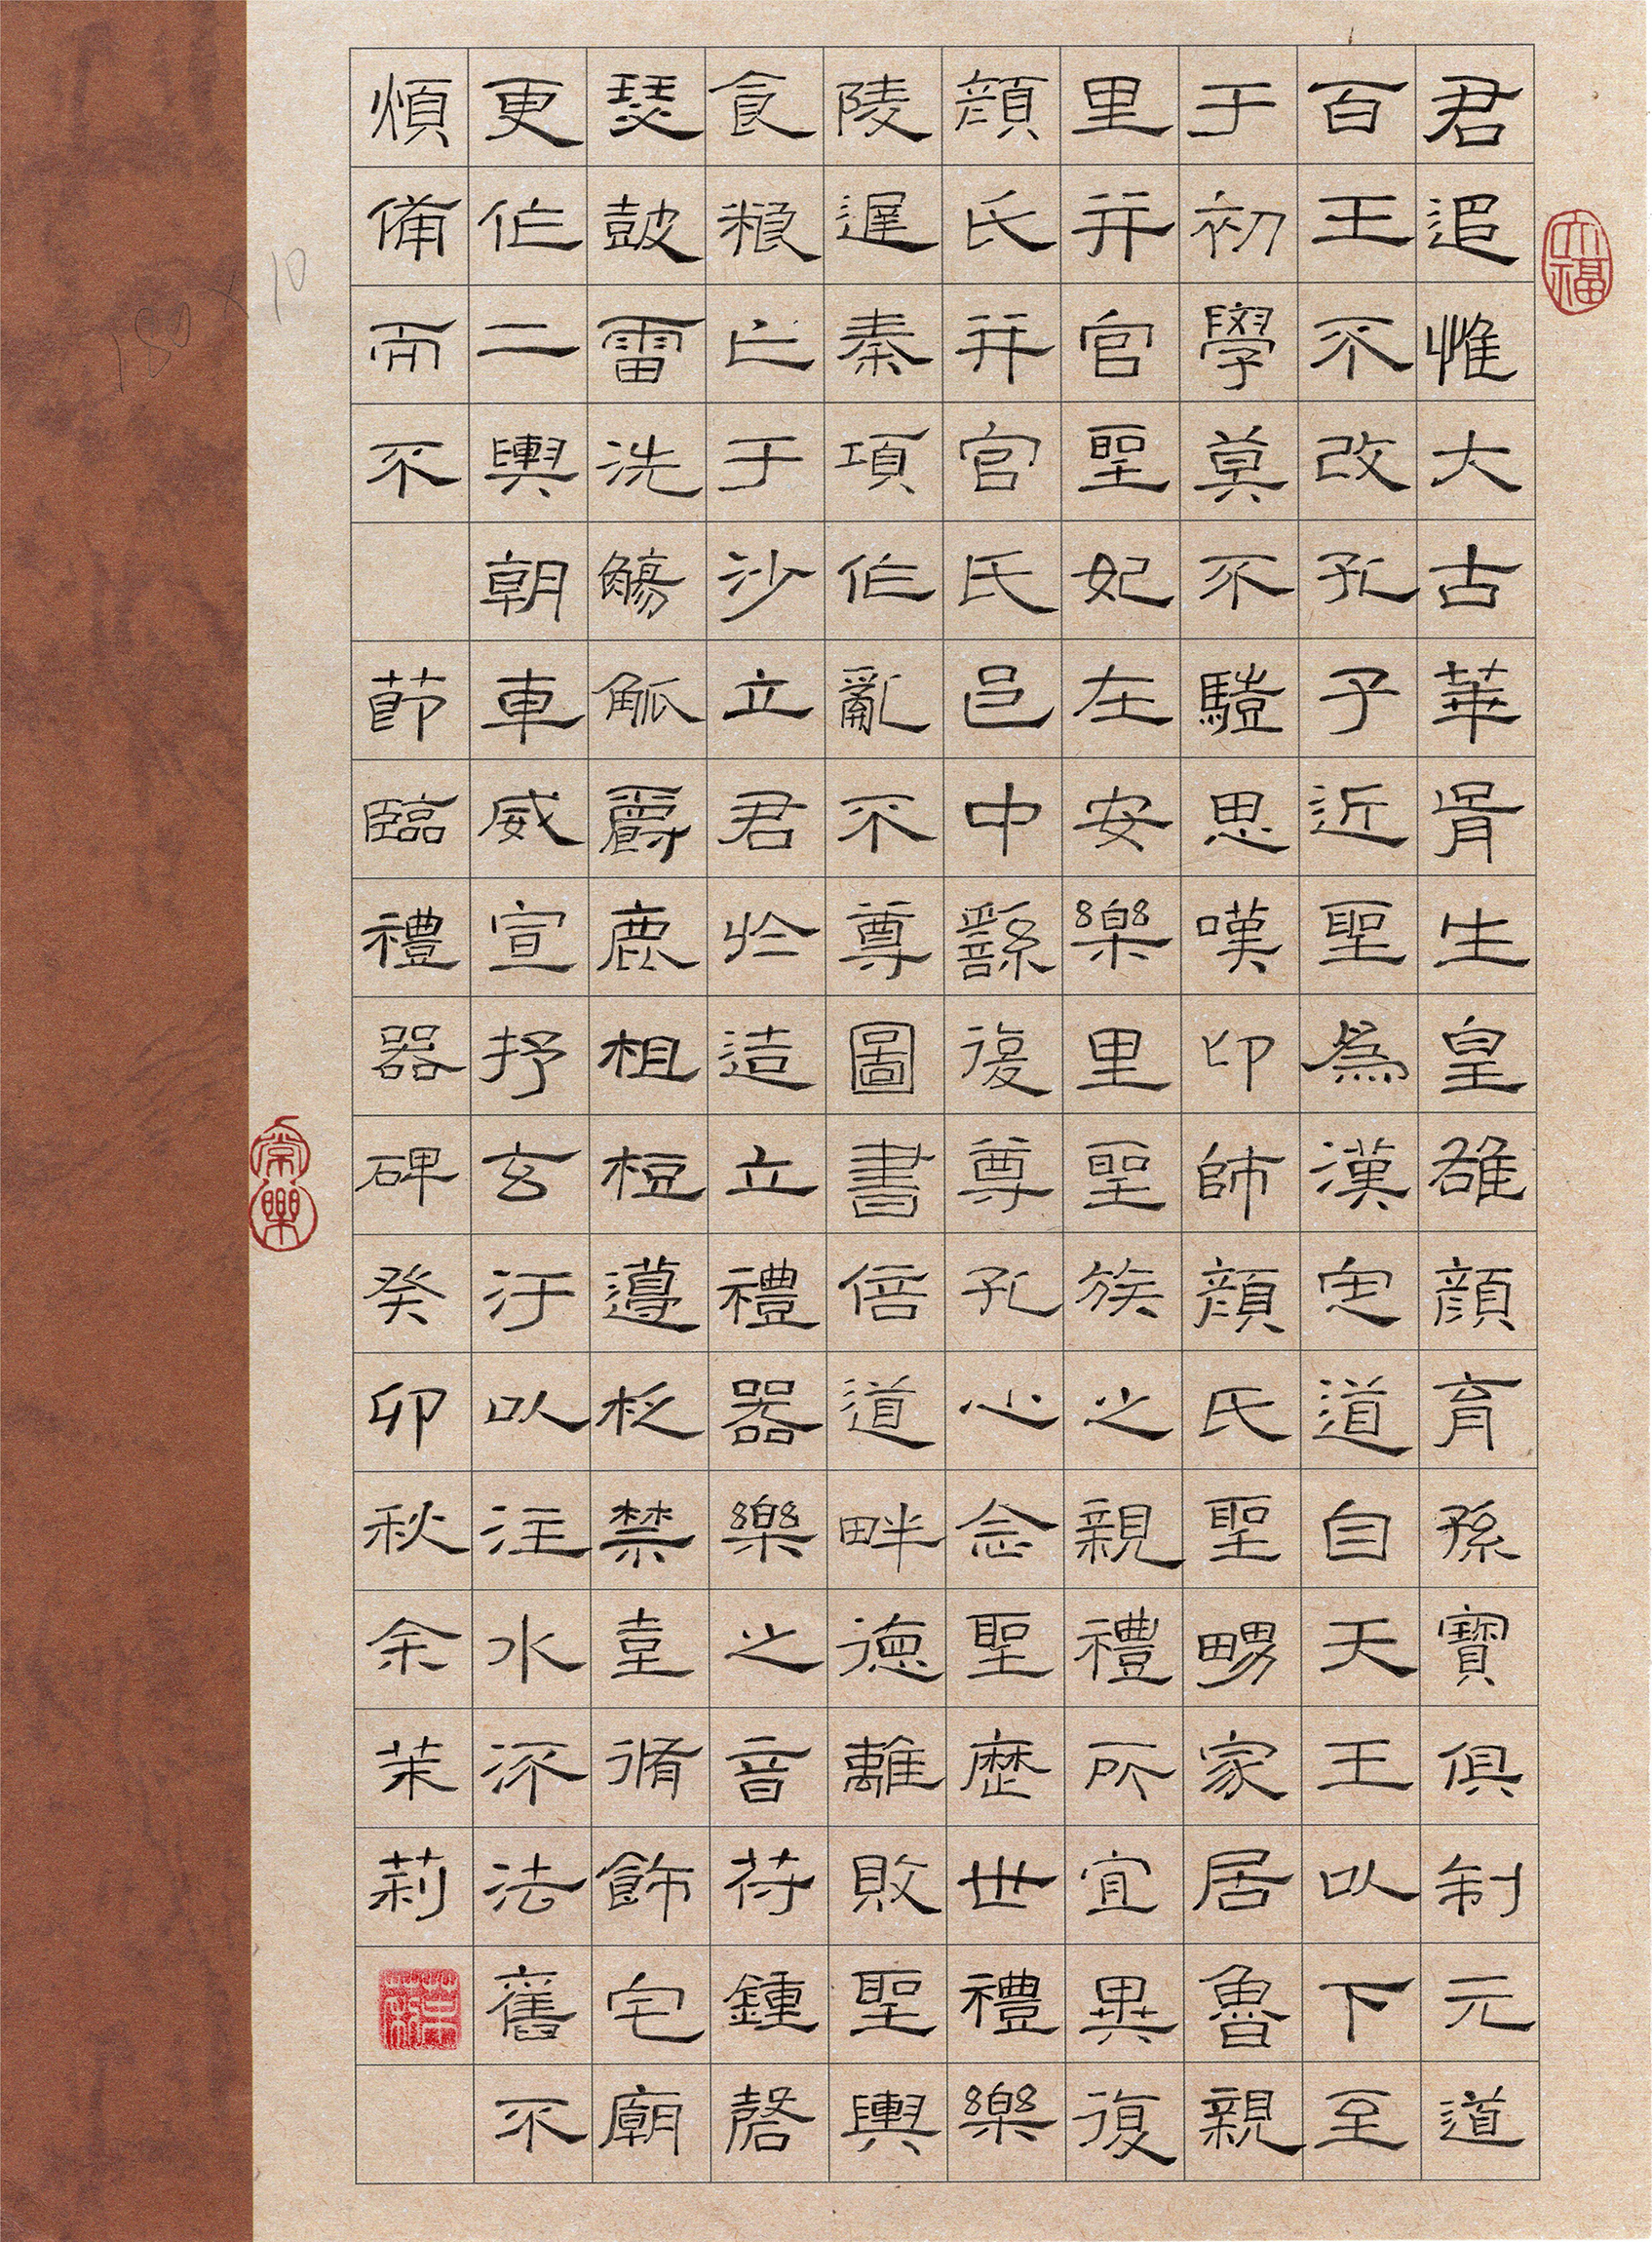 君追惟大古華胥生皇雄顏育孫寶俱制元道
百王不改孔子近聖為漢定道自天王以下至
于初學莫不驥思嘆卬師顏氏聖舅家居魯親
里并官聖妃在安樂里聖族之親禮所宜異復
顏氏并官氏邑中繇復尊孔心念聖歷世禮樂
陵遲秦項作亂不尊圖書倍道畔德離敗聖輿
食粮亡于沙立君於造立禮器樂之音符鍾磬
瑟鼓雷洗觴觚爵鹿柤梪籩柉禁壺脩飾宅廟
更作二輿朝車威宣抒玄汙以注水流法舊不
煩備而不 節臨禮器碑癸卯秋余茉莉
常樂
180×10